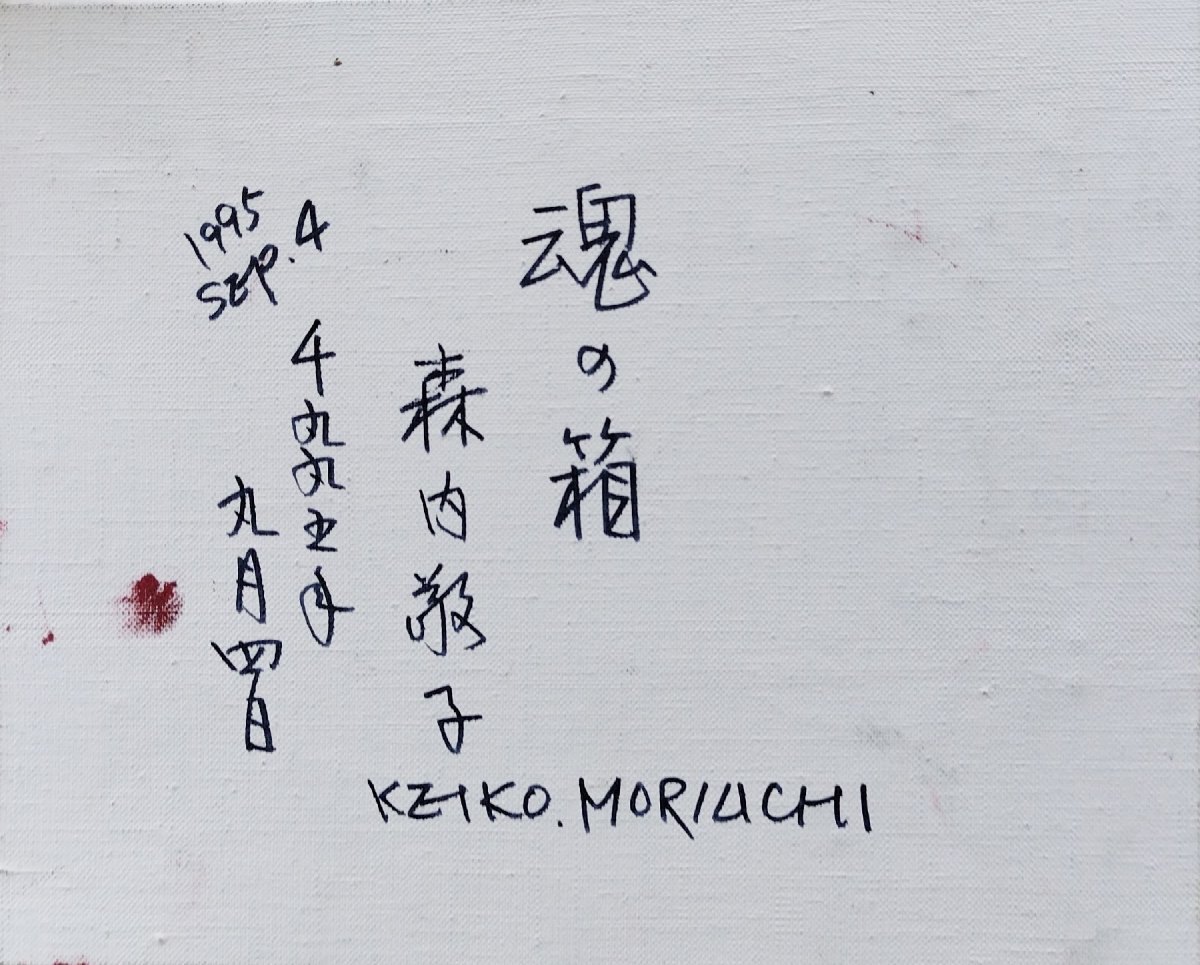 魂の箱
森内敬子
千九九五年
九月四日
1995
SEP. 4
KEIKO. MORIUCHI